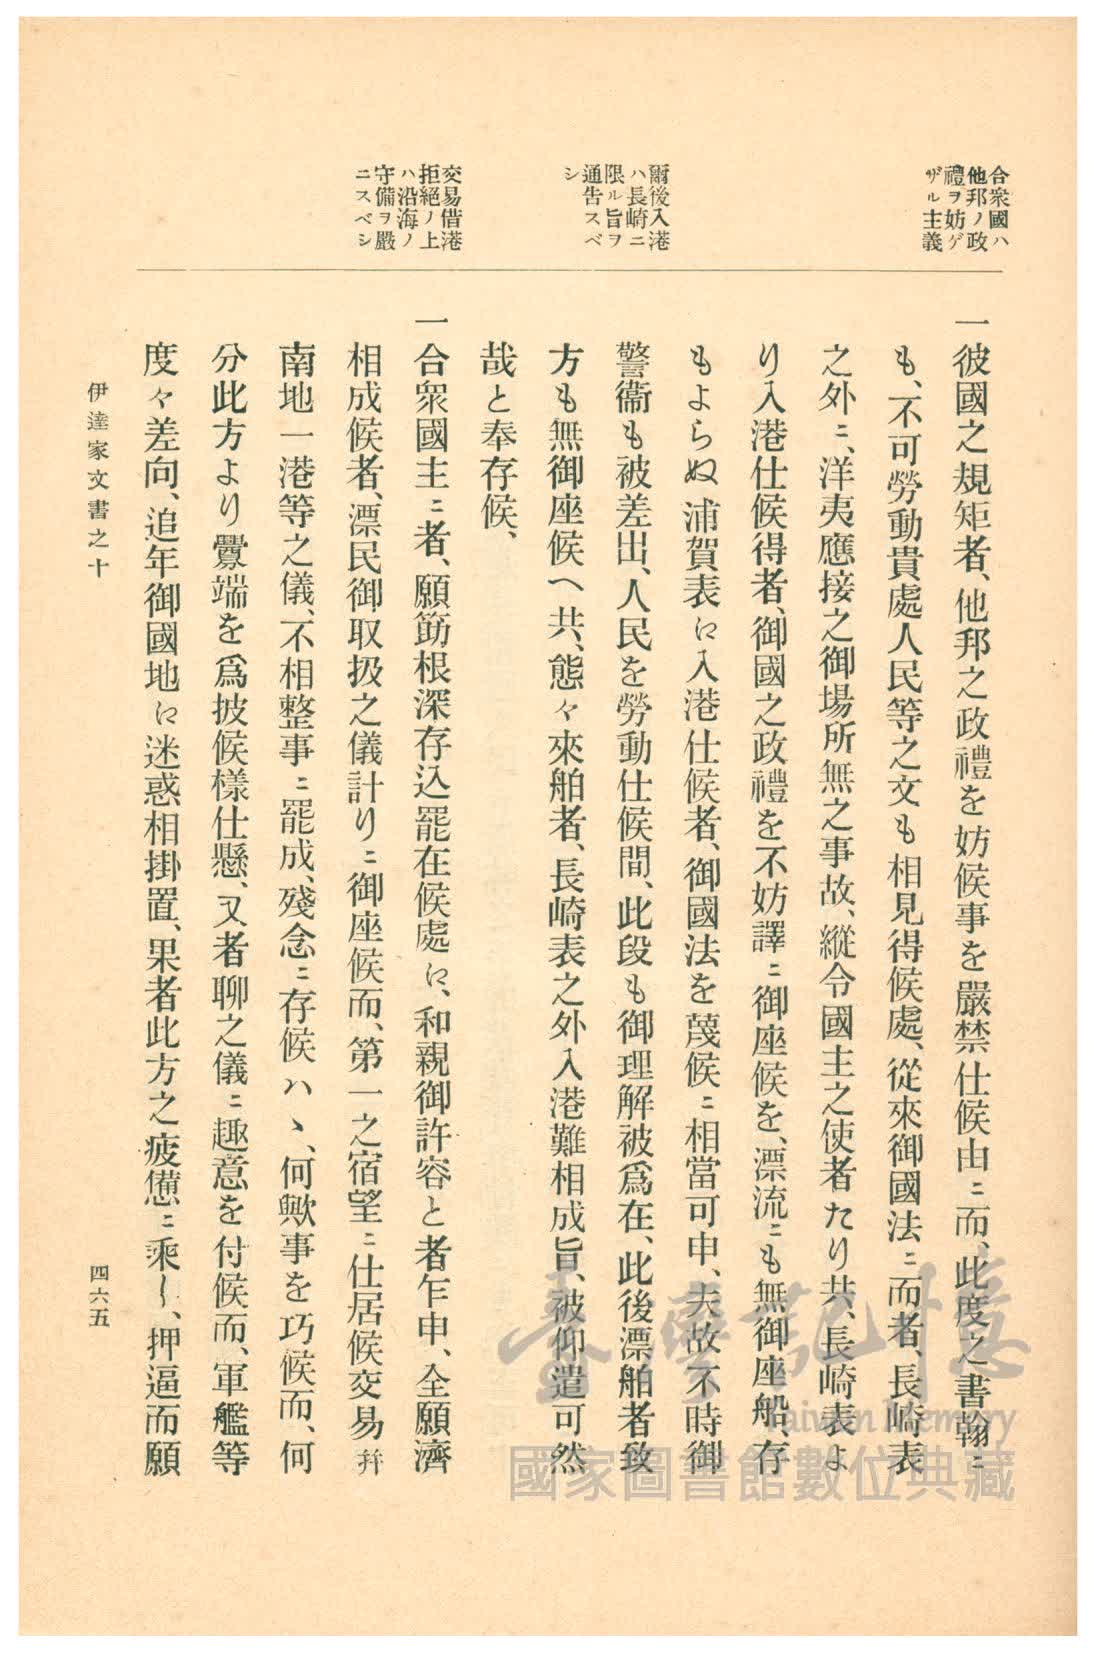 合衆國ハ
他邦ノ政
禮ヲ妨ゲ
ザル主義
爾後入港
ハ長崎ニ
限ル旨ヲ
通告スベ
シ
交易借港
拒絕ノ上
ハ沿海ノ
守備ヲ嚴
ニスベシ
一彼國之規矩者、他邦之政禮を妨候事を嚴禁仕候由ニ而、此度之書翰ニ
も、不可勞動貴處人民等之文も相見得候處、從來御國法ニ而者、長崎表
之外ニ、洋夷應接之御場所無之事故、縱令國主之使者たり共、長崎表よ
り入港仕候得者、御國之政禮を不妨譯ニ御座候を、漂流ニも無御座船、存
もよらぬ浦賀表に入港仕候者、御國法を蔑候ニ相當可申、夫故不時御
警衞も被差出、人民を勞動仕候間、此段も御理解被爲在、此後漂舶者致
方も無御座候へ共、態々來舶者、長崎表之外入港難相成旨、被仰遣可然
哉と奉存候、
一合衆國主ニ者、願筋根深存込罷在候處に、和親御許容と者乍申、全願濟
相成候者、漂民御取扱之儀計りニ御座候而、第一之宿望ニ仕居候交易幷
南地一港等之儀、不相整事ニ罷成、殘念ニ存候ハヽ、何歟事を巧候而、何
分此方より釁端を爲披候樣仕懸、又者聊之儀ニ趣意を付候而、軍艦等
度々差向、追年御國地に迷惑相掛置、果者此方之疲憊ニ乘し、押逼而願
伊達家文書之十
四六五
臺灣記憶
Taiwan Memory
國家圖書館數位典藏